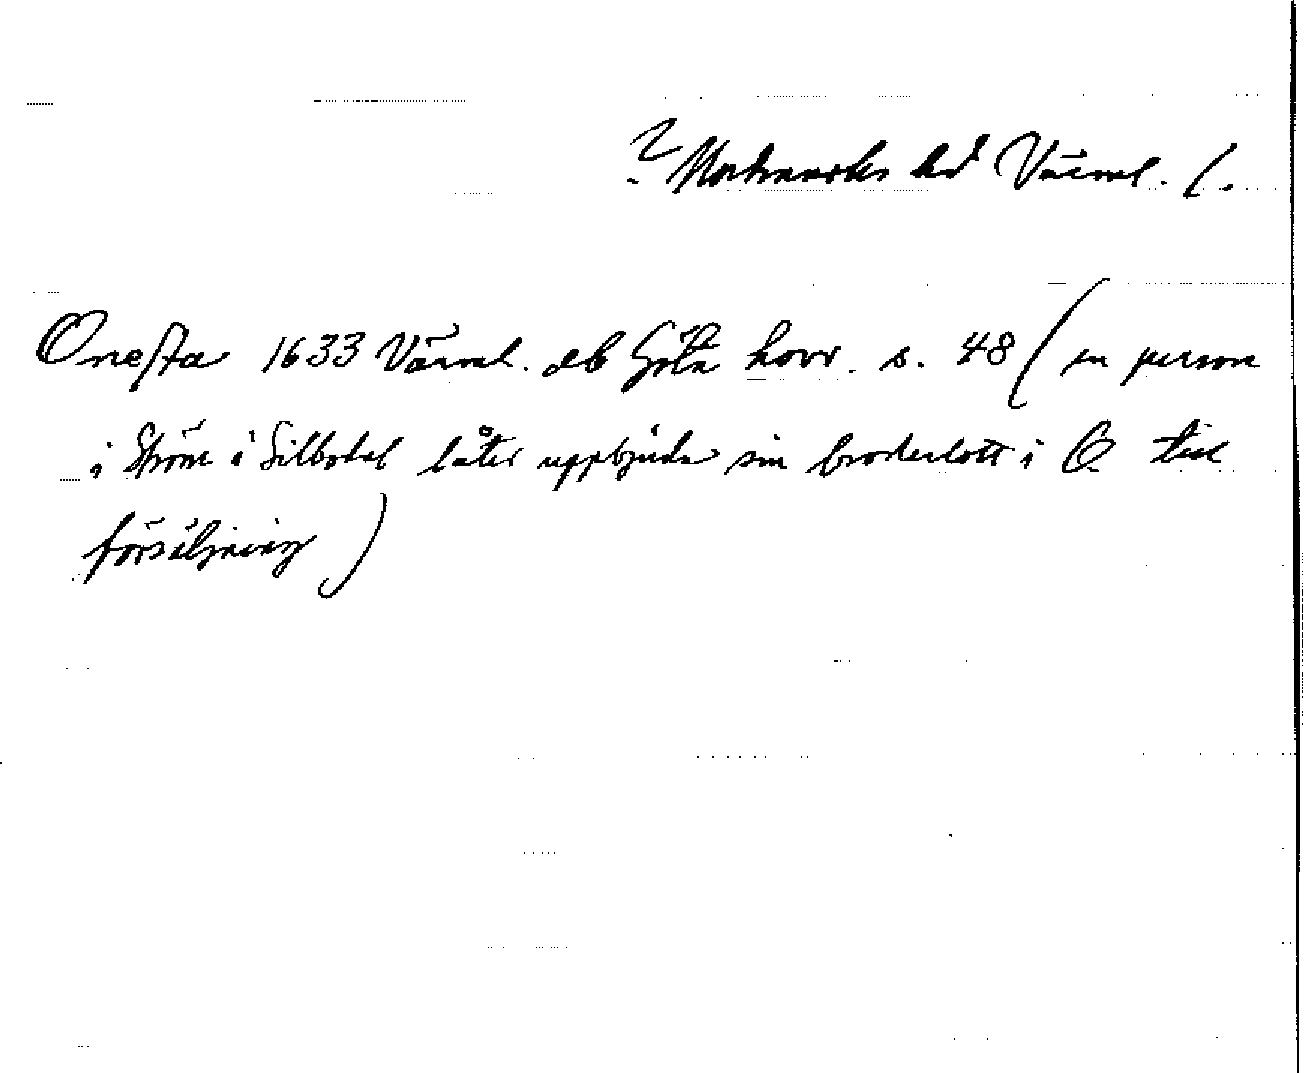 ? Nordmarks hd Värml. l.
Onesta 1633 Värml. db Göta hovr. s. 48 (en person
i Ström i Silbodal låter uppbjuda sin broderlott i O till
försäljning)